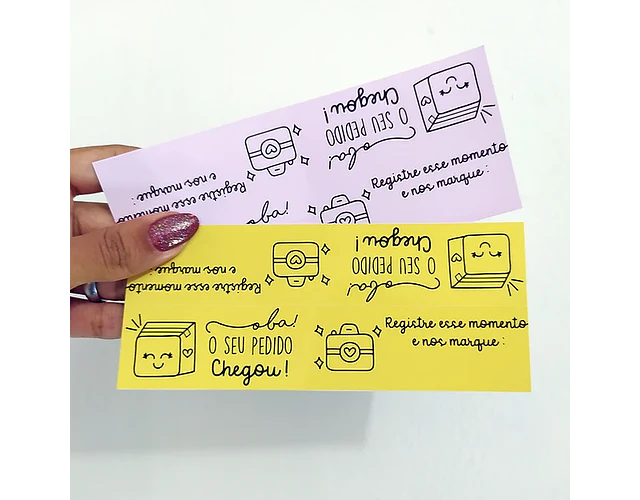 oba!
O SEU PEDIDO
Chegou!
Registre esse momento
e nos marque:
Registre esse momento
e nos marque:
oba!
oba!
O SEU PEDIDO
Chegou!
Registre esse momento
e nos marque:
oba!
O SEU PEDIDO
Chegou!
Registre esse momento
e nos marque: